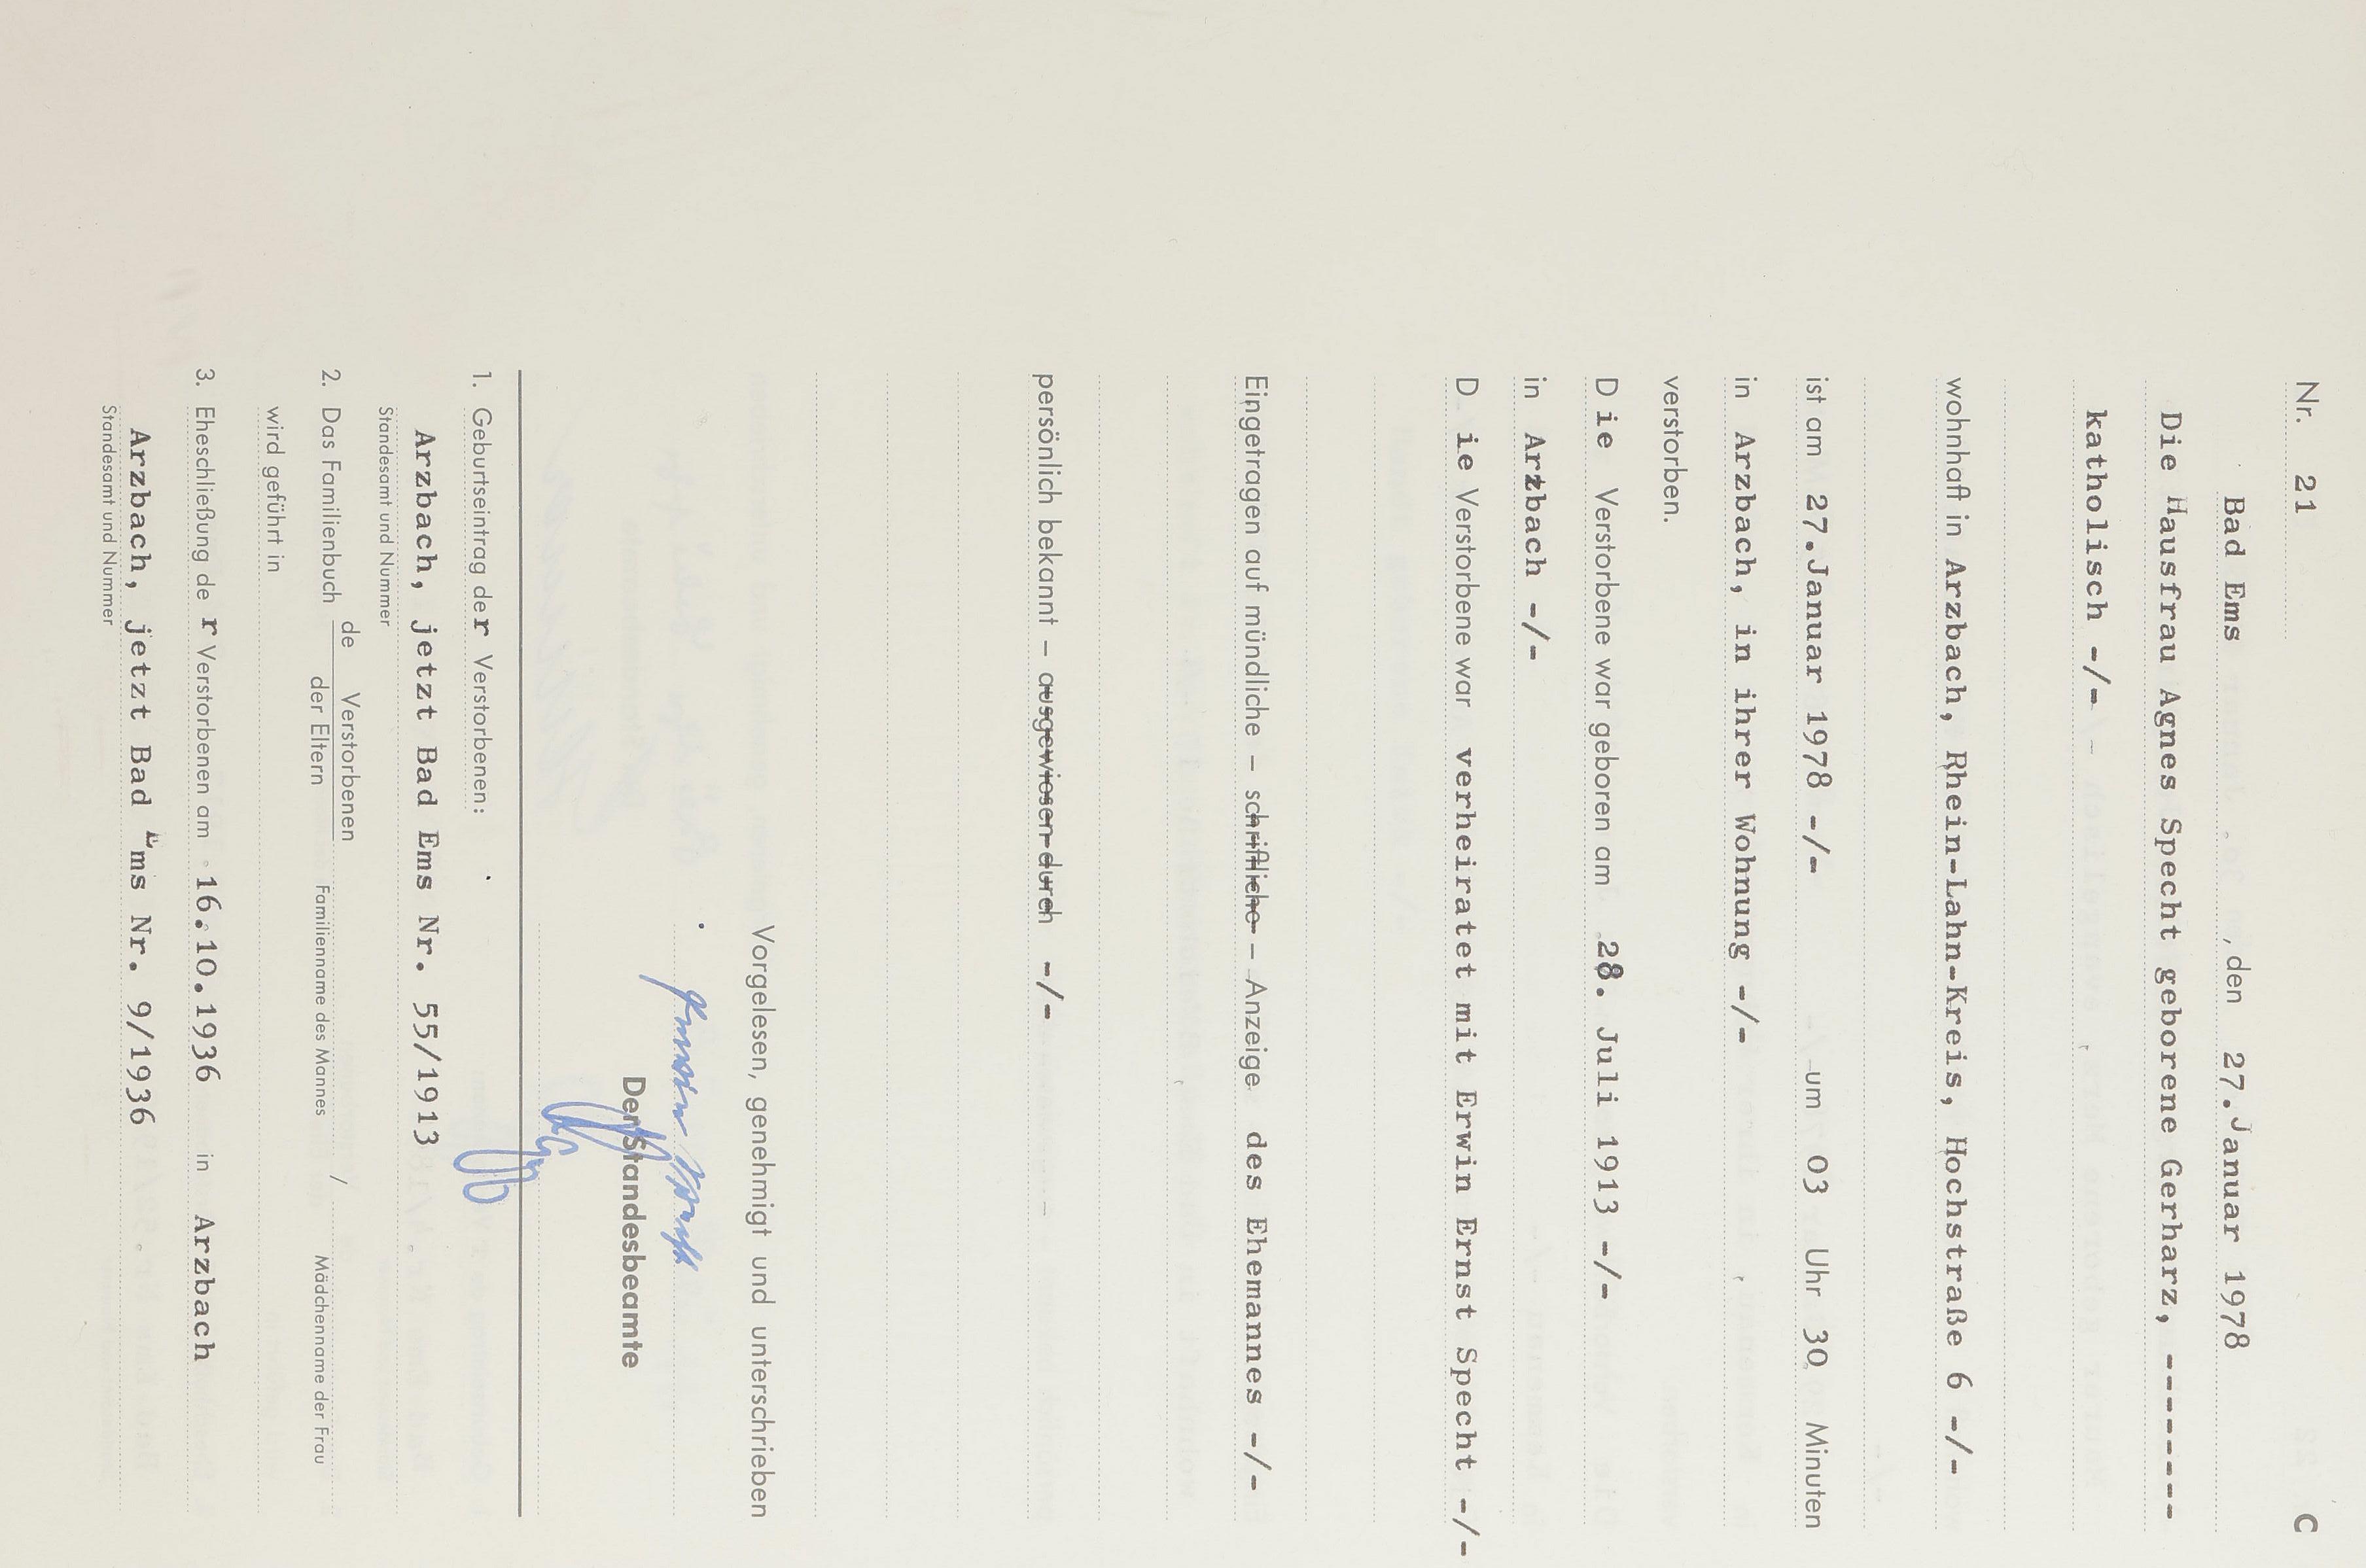 Nr. 21 C
Bad Ems , den 27.Januar 1978
Die Hausfrau Agnes Specht geborene Gerharz, --------
katholisch -/-
wohnhaft in Arzbach, Rhein-Lahn-Kreis, Hochstraße 6 -/-
ist am 27.Januar 1978 -/- um 03 Uhr 30 Minuten
in Arzbach, in ihrer Wohnung -/-
verstorben.
Die Verstorbene war geboren am 28. Juli 1913 -/-
in Arzbach -/-
D ie Verstorbene war verheiratet mit Erwin Ernst Specht -/-
Eingetragen auf mündliche – schriftliche – Anzeige des Ehemannes -/-
persönlich bekannt – ausgewiesen durch -/-
Vorgelesen, genehmigt und unterschrieben
Erwin Specht
Der Standesbeamte
1. Geburtseintrag der Verstorbenen:
Arzbach, jetzt Bad Ems Nr. 55/1913
Standesamt und Nummer
2. Das Familienbuch de Verstorbenen
der Eltern Familienname des Mannes / Mädchenname der Frau
wird geführt in
3. Eheschließung de r Verstorbenen am 16.10.1936 in Arzbach
Arzbach, jetzt Bad Ems Nr. 9/1936
Standesamt und Nummer